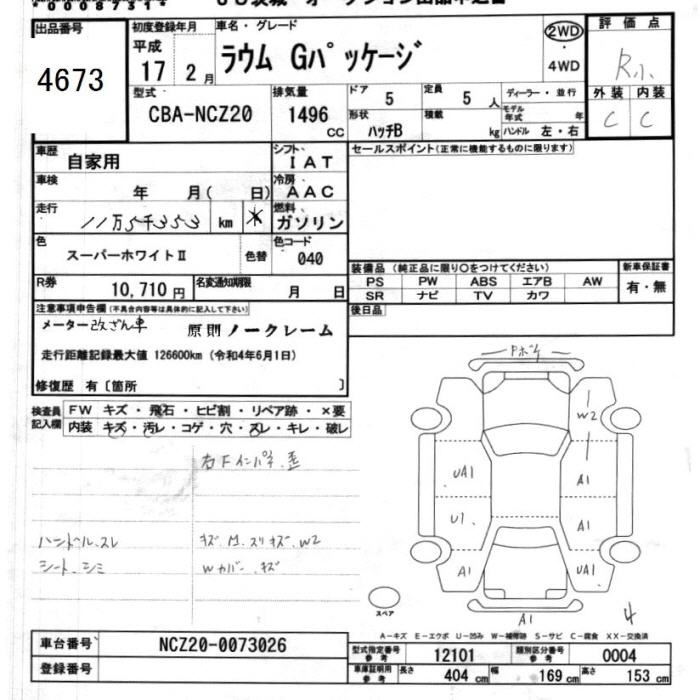 出品番号
4673
初度登録年月
平成
17 2 月
車名・グレード
ラウム Gパッケージ
2WD
・
4WD
評価点
R小
外装 内装
C C
型式
CBA-NCZ20
排気量
1496
CC
ドア
5
定員
5 人
ディーラー・並行
モデル年式 年
形状
ハッチB
積載
kg
ハンドル 左・右
車歴
自家用
シフト
IAT
セールスポイント(正常に機能するものに限ります)
車検
年 月( 日)
冷房
AAC
走行
11万5千353 km *
燃料
ガソリン
色
スーパーホワイトⅡ
色替
色コード
040
R券
10,710 円
名変通知期限
月 日
装備品 (純正品に限り○をつけてください)
PS PW ABS エアB AW
SR ナビ TV カワ
新車保証書
有・無
後日品
注意事項申告欄(不具合内容等は具体的に記入して下さい)
メーター改ざん車 原則ノークレーム
走行距離記録最大値 126600km (令和4年6月1日)
修復歴 有〔箇所 〕
検査員記入欄
FW キズ・飛石・ヒビ割・リペア跡・×要
内装 キズ・汚レ・コゲ・穴・スレ・キレ・破レ
右Fインパネ歪
ハンドル.スレ
シート.シミ
キズ.凹.スリキズ.W2
Wカバー.キズ
Pボケ
W2
UA1
A1
U1
A1
A1
UA1
A1
スペア
4
A-キズ E-エクボ U-凹み W-補修跡 S-サビ C-腐食 XX-交換済
車台番号
NCZ20-0073026
登録番号
型式指定番号 参考
12101
類別区分番号 参考
0004
車庫証明用 参考
長さ 404 cm
幅 169 cm
高さ 153 cm